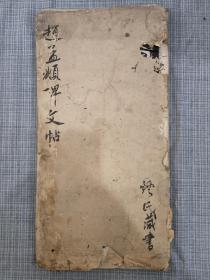 趙孟頫碑文帖
藏書